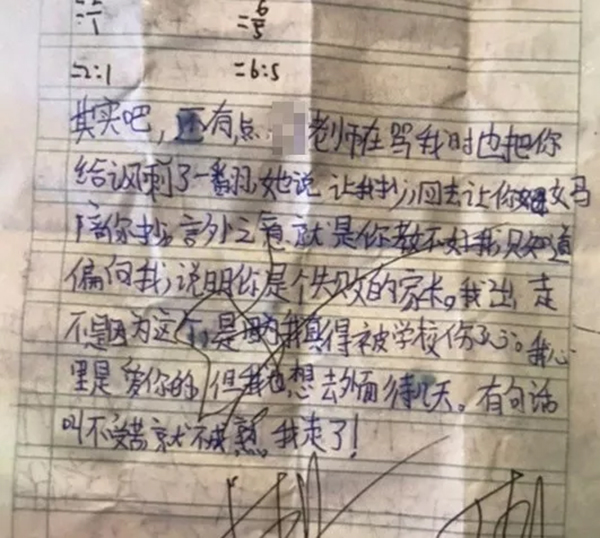 =6/5
=2:1 =6:5
其实吧,还有点 老师在骂我时也把你
给讽刺了一番,她说让我抄,回去让你妈妈
陪你抄,言外之意就是你教不好我只知道
偏向我,说明你是个失败的家长。我出走
不是因为这个,是因为我真得被学校伤了。我心
里是爱你的,但我也想去外面待几天。有句话
叫不受苦就不成熟,我走了!